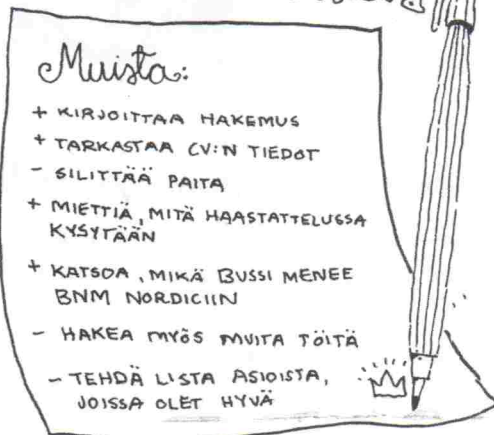 Muista:
+ KIRJOITTAA HAKEMUS
+ TARKASTAA CV:N TIEDOT
- SILITTÄÄ PAITA
+ MIETTIÄ, MITÄ HAASTATTELUSSA
KYSYTÄÄN
+ KATSOA, MIKÄ BUSSI MENEE
BNM NORDICIIN
- HAKEA MYÖS MUITA TÖITÄ
- TEHDÄ LISTA ASIOISTA,
JOISSA OLET HYVÄ